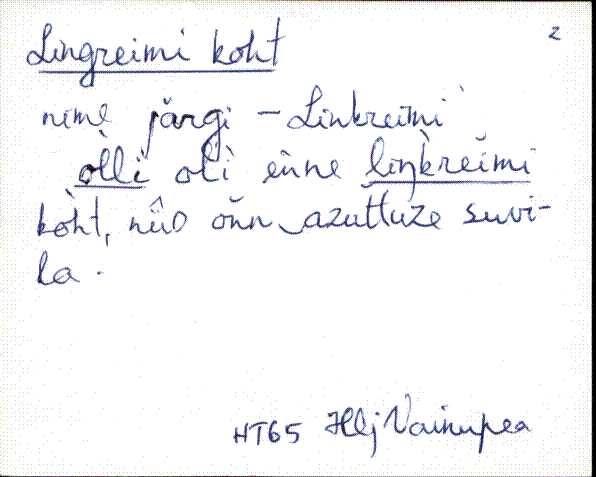 2
Lingreimi koht
nime järgi – Linkreimi
òlli oli enne liŋkreĭmi
koht, nüd ŏnn‿azuttuze suvi-
la.
HT65 Hlj Vainupea